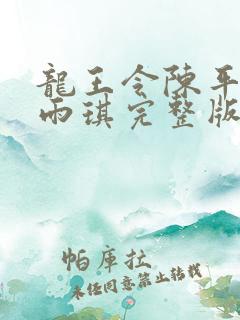 龍王令陳平
雨琪完整版
帕庫拉
未经同意禁止转载